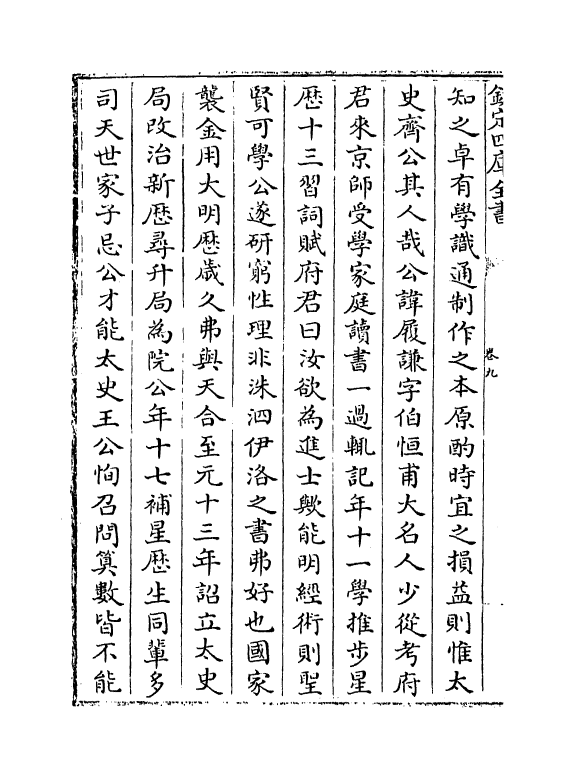 欽定四庫全書
卷九
知之卓有學識通制作之本原酌時宜之損益則惟太
史齊公其人哉公諱履謙字伯恒甫大名人少從考府
君來京師受學家庭讀書一過輒記年十一學推步星
歴十三習詞賦府君曰汝欲為進士歟能明經術則聖
賢可學公遂研窮性理非洙泗伊洛之書弗好也國家
襲金用大明歴歲久弗與天合至元十三年詔立太史
局改治新歴尋升局為院公年十七補星歴生同輩多
司天世家子忌公才能太史王公恂召問筭數皆不能